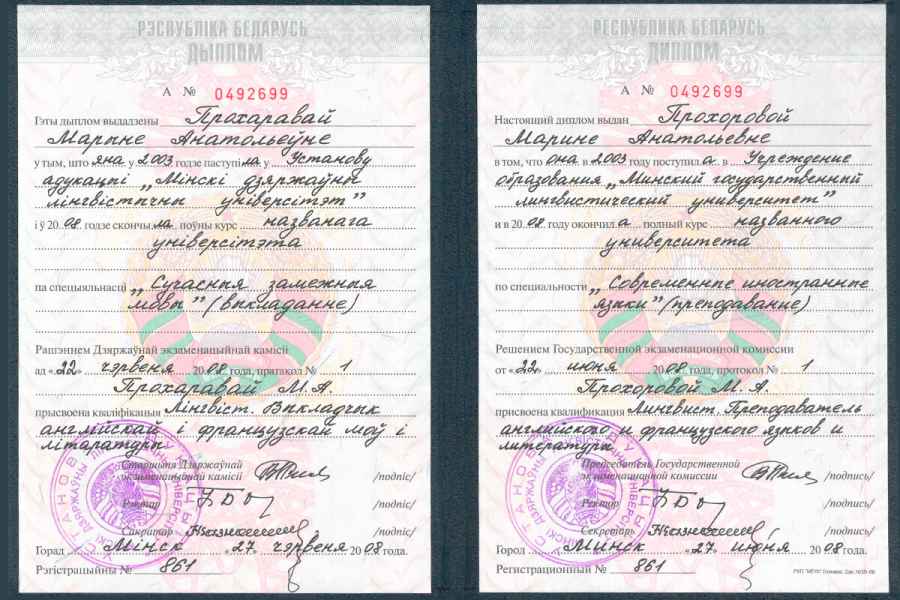 РЭСПУБЛІКА БЕЛАРУСЬ
ДЫПЛОМ
А № 0492699
Гэты дыплом выдадзены Прохаравай
Марыне Анатольеўне
у тым, што яна у 2003 годзе паступіла у Установу
адукацыі „Мінскі дзяржаўны
лінгвістычны універсітэт"
і ў 2008 годзе скончыла поўны курс названага
універсітэта
па спецыяльнасці „Сучасныя замежныя
мовы" (выкладанне)
Рашэннем Дзяржаўнай экзаменацыйнай камісіі
ад «22» чэрвеня 2008 года, пратакол № 1
Прохаравай М. А.
прысвоена кваліфікацыя Лінгвіст. Выкладчык
англійскай і французскай моў і
літаратуры
Старшыня Дзяржаўнай
экзаменацыйнай камісіі /подпіс/
Рэктар /подпіс/
Сакратар /подпіс/
Горад Мінск «27» чэрвеня 2008 года.
Рэгістрацыйны № 861
РЕСПУБЛИКА БЕЛАРУСЬ
ДИПЛОМ
А № 0492699
Настоящий диплом выдан Прохоровой
Марине Анатольевне
в том, что она в 2003 году поступила в Учреждение
образования „Минский государственный
лингвистический университет"
и в 2008 году окончила полный курс названного
университета
по специальности „Современные иностранные
языки" (преподавание)
Решением Государственной экзаменационной комиссии
от «22» июня 2008 года, протокол № 1
Прохоровой М. А.
присвоена квалификация Лингвист. Преподаватель
английского и французского языков и
литературы
Председатель Государственной
экзаменационной комиссии /подпись/
Ректор /подпись/
Секретарь /подпись/
Город Минск «27» июня 2008 года.
Регистрационный № 861